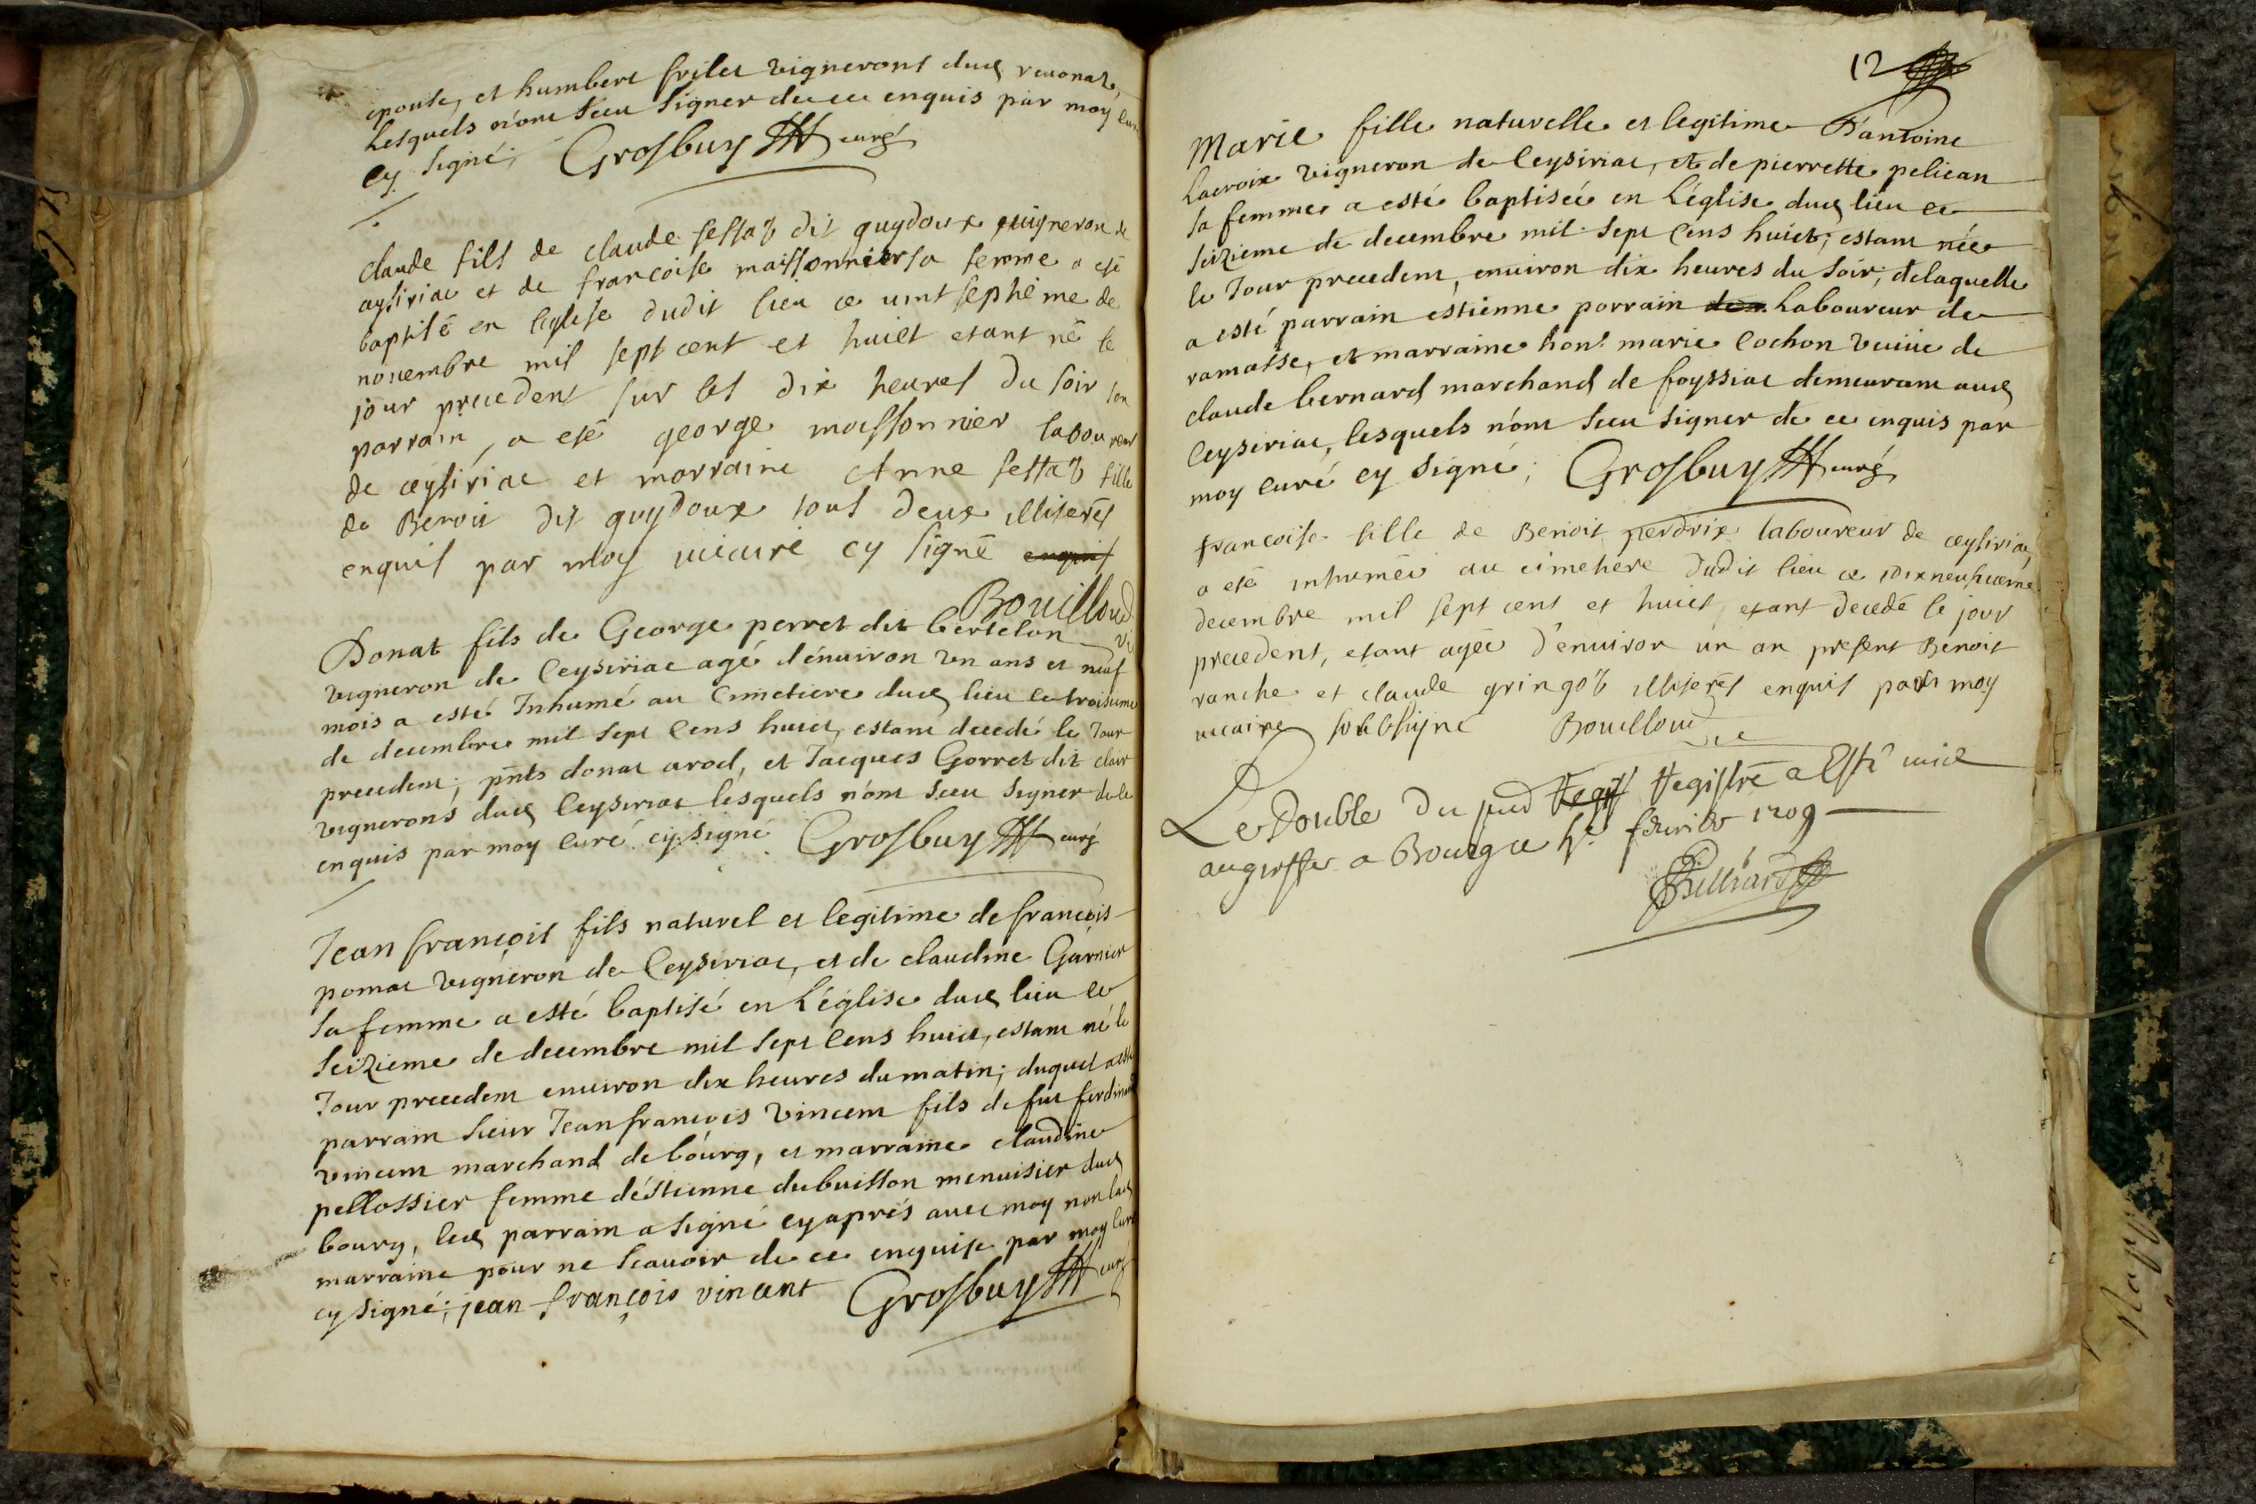 epouse, et humbert frilet vignerons dud revonaz,
Lesquels n'ont sceu signer de ce enquis par moy curé
cy signé; Grosbuy curé
claude fils de claude sessaz dit guydoux vigneron de
ceysiriac et de francoise maissonnier sa femme a esté
baptisé en l'eglise dudit lieu ce vint septieme de
novembre mil sept cent et huict etant né le
jour precedent sur les dix heures du soir son
parrain, a esté george maissonnier laboureur
de ceysiriac et marraine Anne sessaz fille
de Benoit dit guydoux tous deux illiterés
enquis par Moy vicaire cy signé enquis
Bouilloud
vi
Donat fils de George perret dit bertelon
vigneron de Ceysiriac agé d'environ un ans et neuf
mois a esté Inhumé au Cimetiere dud lieu ce troisieme
de decembre mil sept Cens huict, estant decedé le Jour
precedent; pnts donat arod, et Jacques Gorret dit clair
vignerons dud Ceysiriac lesquels n'ont sceu signer de ce
enquis par moy curé cy signé Grosbuy curé
Jean françois fils naturel et legitime de françois
pomat vigneron de Ceysiriac, et de claudine Garnier
sa femme a esté baptisé en L'église dud lieu ce
seizieme de decembre mil sept Cens huict, estant né le
Jour precedent environ dix heures du matin; duquel a esté
parrain sieur Jean françois Vincent fils de fut ferdinand
vincent marchand de bourg, et marraine claudine
pellossier femme d'éstienne dubuisson menuisier dud
bourg, led parrain a signé cy aprés avec moy non lad
marraine pour ne scavoir de ce enquise par moy curé
cy signé; jean françois vincent Grosbuy curé
12
Marie fille naturelle et legitime D'antoine
Lacroix vigneron de Ceysiriac, et de pierrette pelican
sa femme a esté baptisée en L'église dud lieu ce
seizieme de decembre mil sept Cens huict; estant née
le Jour precedent, environ dix heures du soir, de laquelle
a esté parrain estienne porrain Laboureur de
ramasse, et marraine hon. marie Cochon veuue de
claude bernard marchand de foyssiac demeurant aud
Ceysiriac, lesquels n'ont sceu signer de ce enquis par
moy curé cy signé; Grosbuy curé
francoise fille de Benoit perdrix laboureur de ceysiriac,
a esté inhumée au cimetiere dudit lieu ce dix neufvieme
decembre mil sept cent et huict, etant decedé le jour
precedent, etant agée d'environ un an present Benoit
ranche et claude gringoz illiterés enquis par moy
vicaire soubsigné Bouilloud
vic
Le Double du pnt Regist Registre a Esté mis
au greffe a Bourg ce fevrier 1709